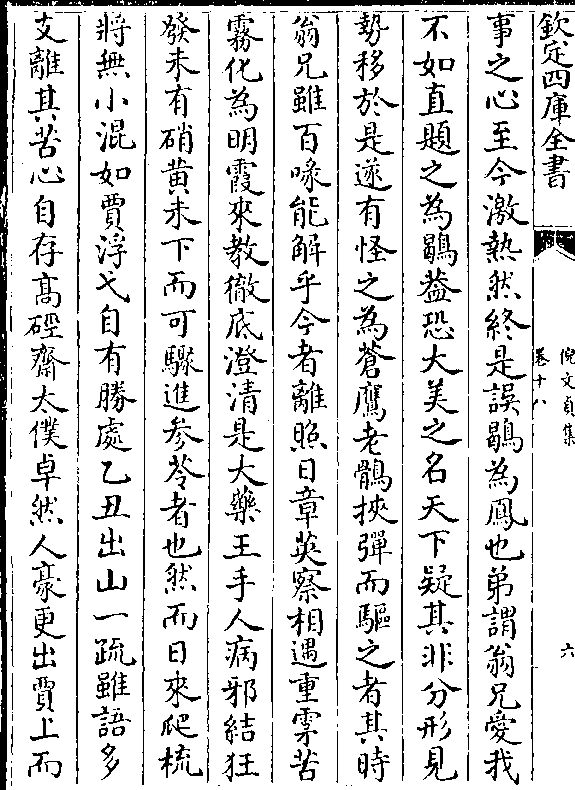 欽定四庫全書
倪文貞集
卷十八
六
事之心至今激熱然終是誤鶡為鳳也弟謂翁兄愛我
不如直題之為鶡葢恐大美之名天下疑其非分形見
勢移於是遂有怪之為蒼鷹老鶻挾彈而驅之者其時
翁兄雖百喙能解乎今者離照日章英察相遇重雺苦
霧化為明霞來教徹底澄清是大藥王手人病邪結狂
發未有硝黄未下而可驟進參苓者也然而日來爬梳
將無小混如賈浮弋自有勝處乙丑出山一疏雖語多
支離其苦心自存髙硜齋太僕卓然人豪更出賈上而